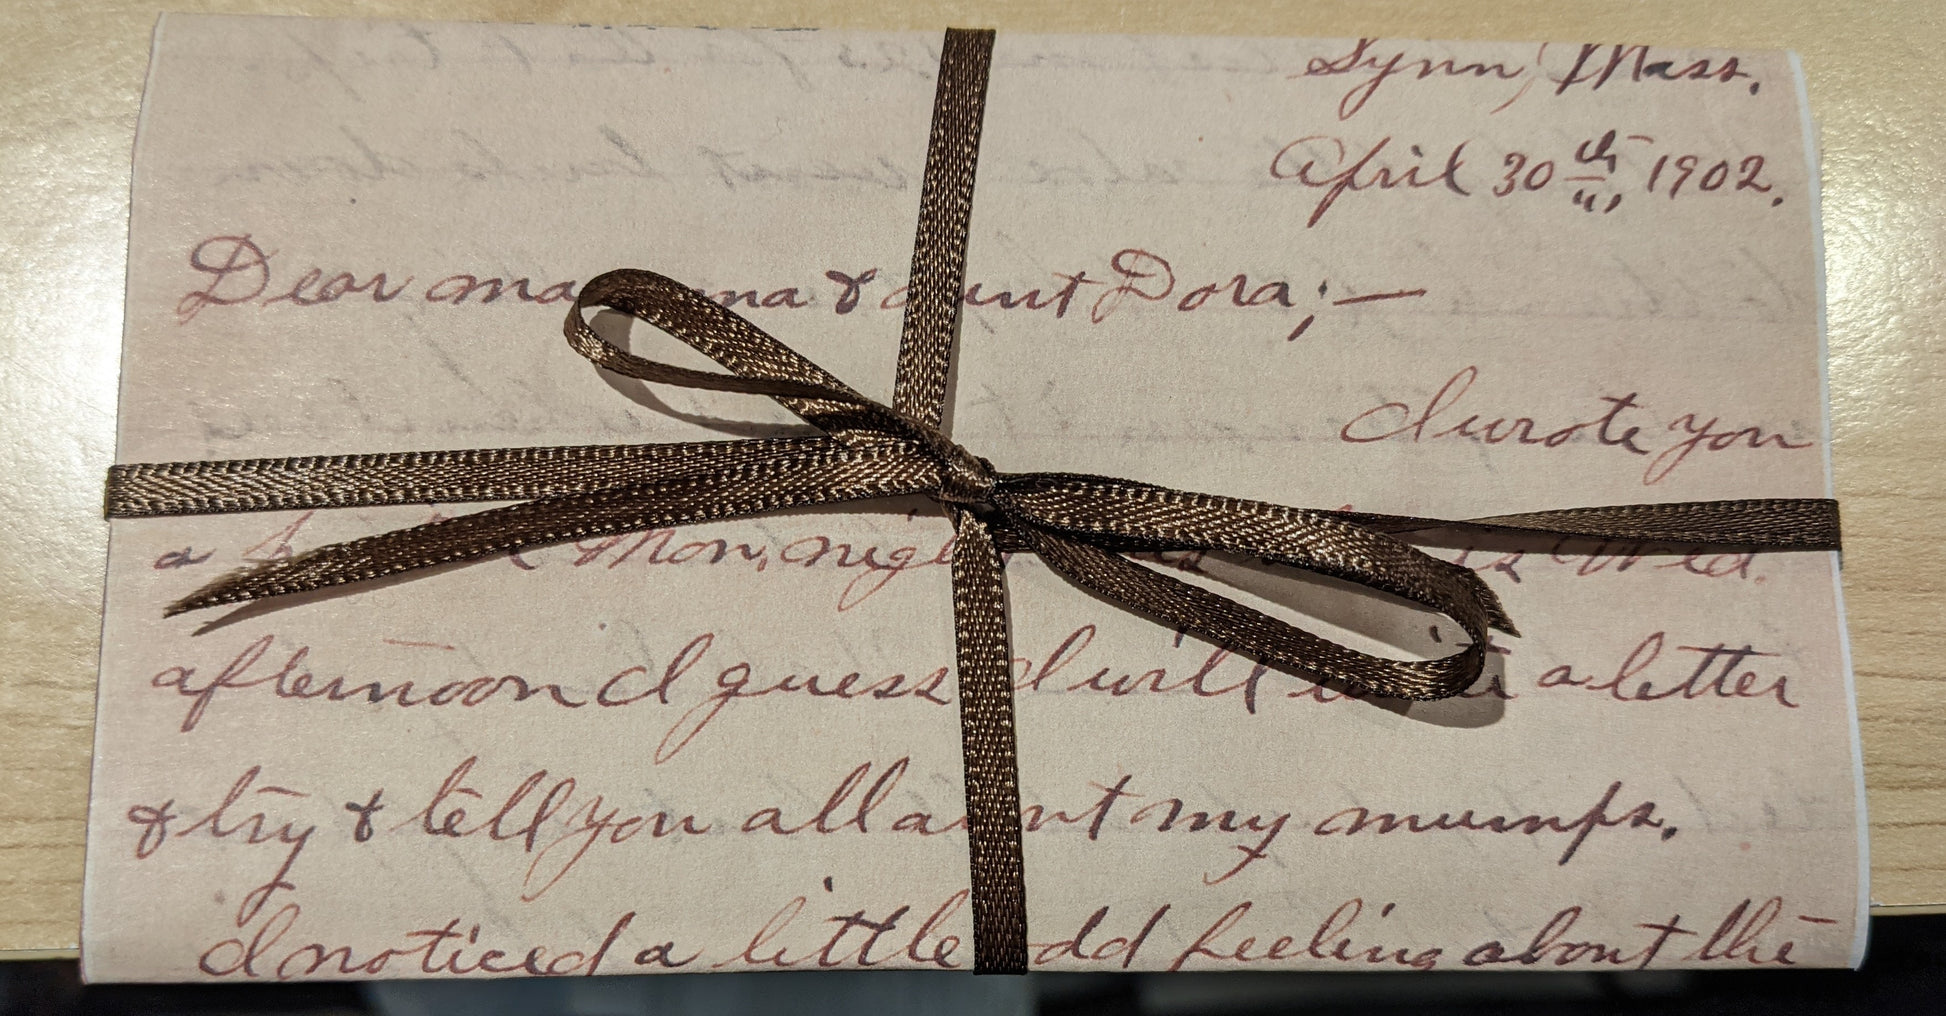 Lynn, Mass.
April 30th, 1902.
Dear mamma & aunt Dora; —
I wrote you
a Mon. night is Wed.
afternoon I guess I will write a letter
& try & tell you all about my mumps.
I noticed a little odd feeling about the